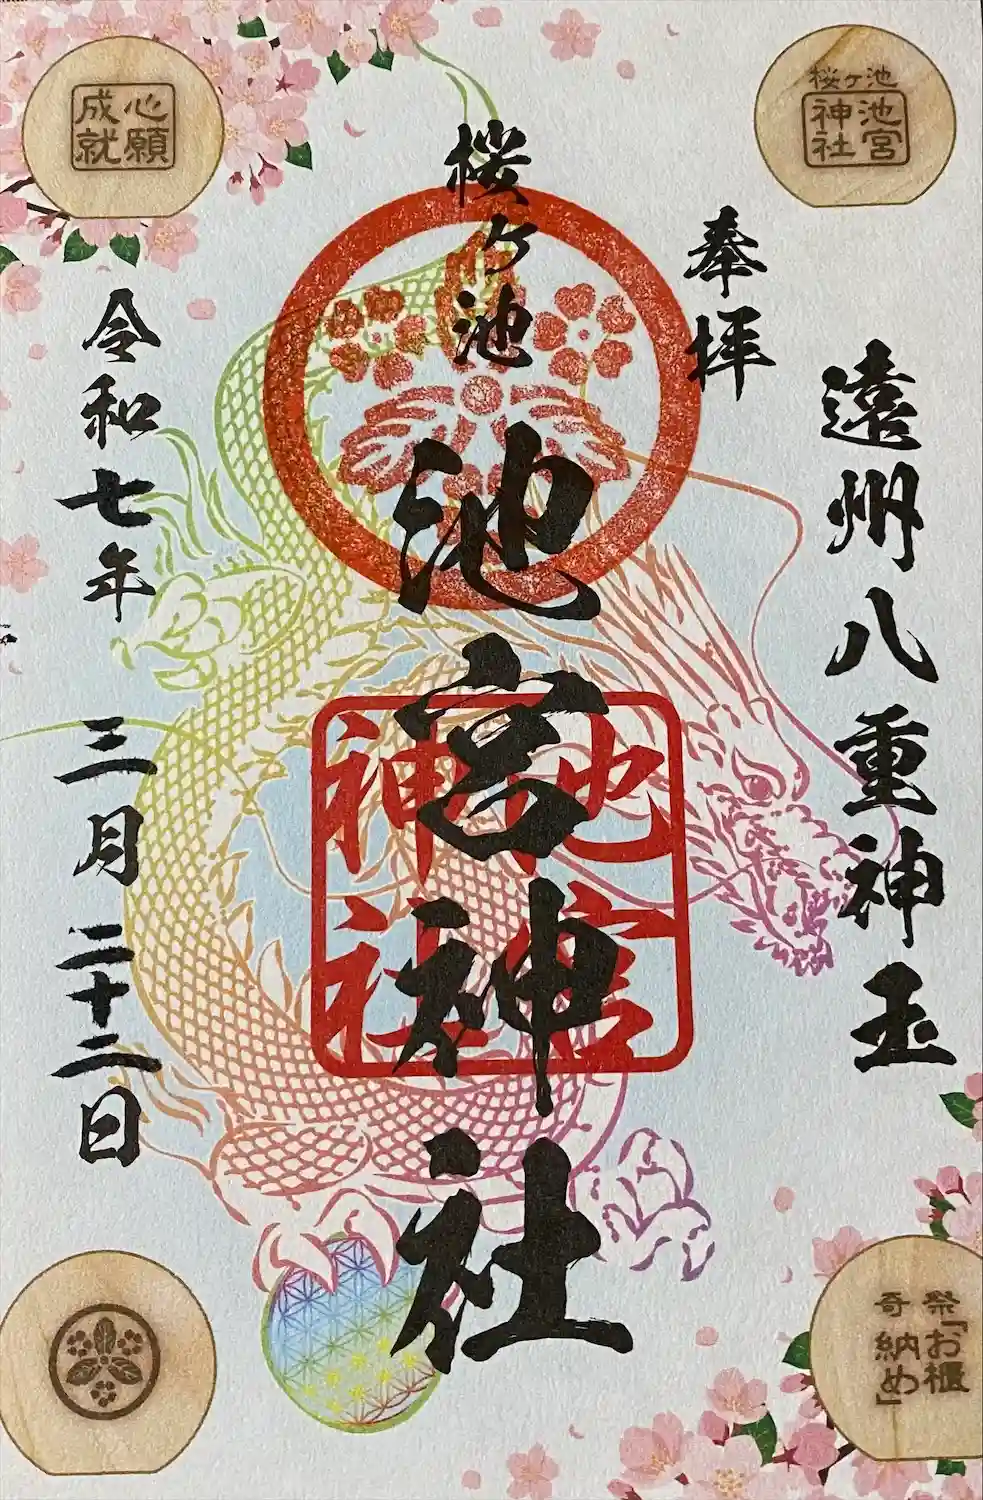 桜ヶ池
池宮
神社
遠州八重神玉
奉拝
桜ヶ池
池宮神社
池宮
神社
心願
成就
令和七年
三月二十二日
奇祭
「お櫃
納め」